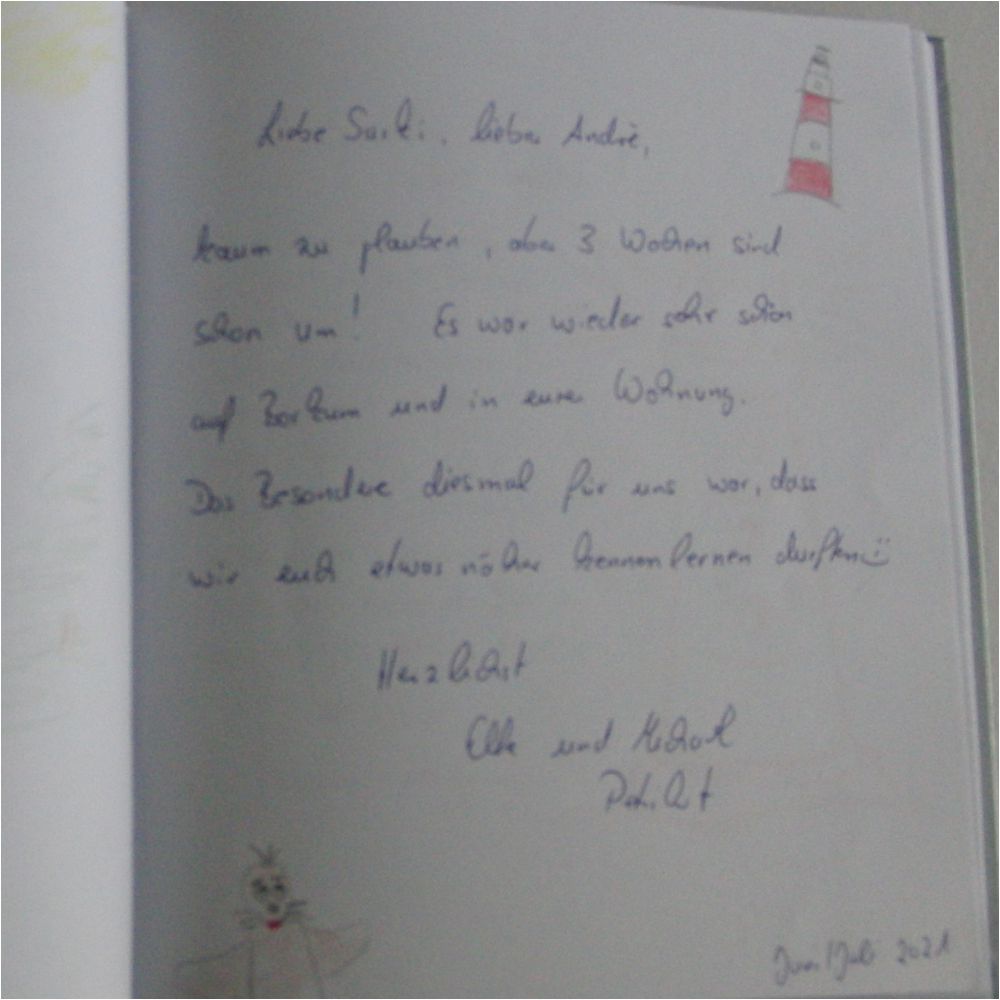 Liebe , lieber André,
kaum zu glauben, aber 3 Wochen sind
schon um! Es war wieder sehr schön
auf Borkum und in eurer Wohnung.
Das Besondere diesmal für uns war, dass
wir euch etwas näher kennenlernen durften :)
Herzlichst
Elke und Michael
Juni/Juli 2021